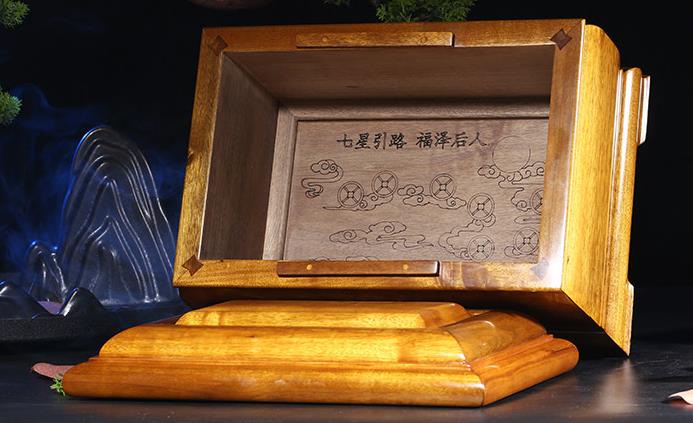 七星引路 福泽后人